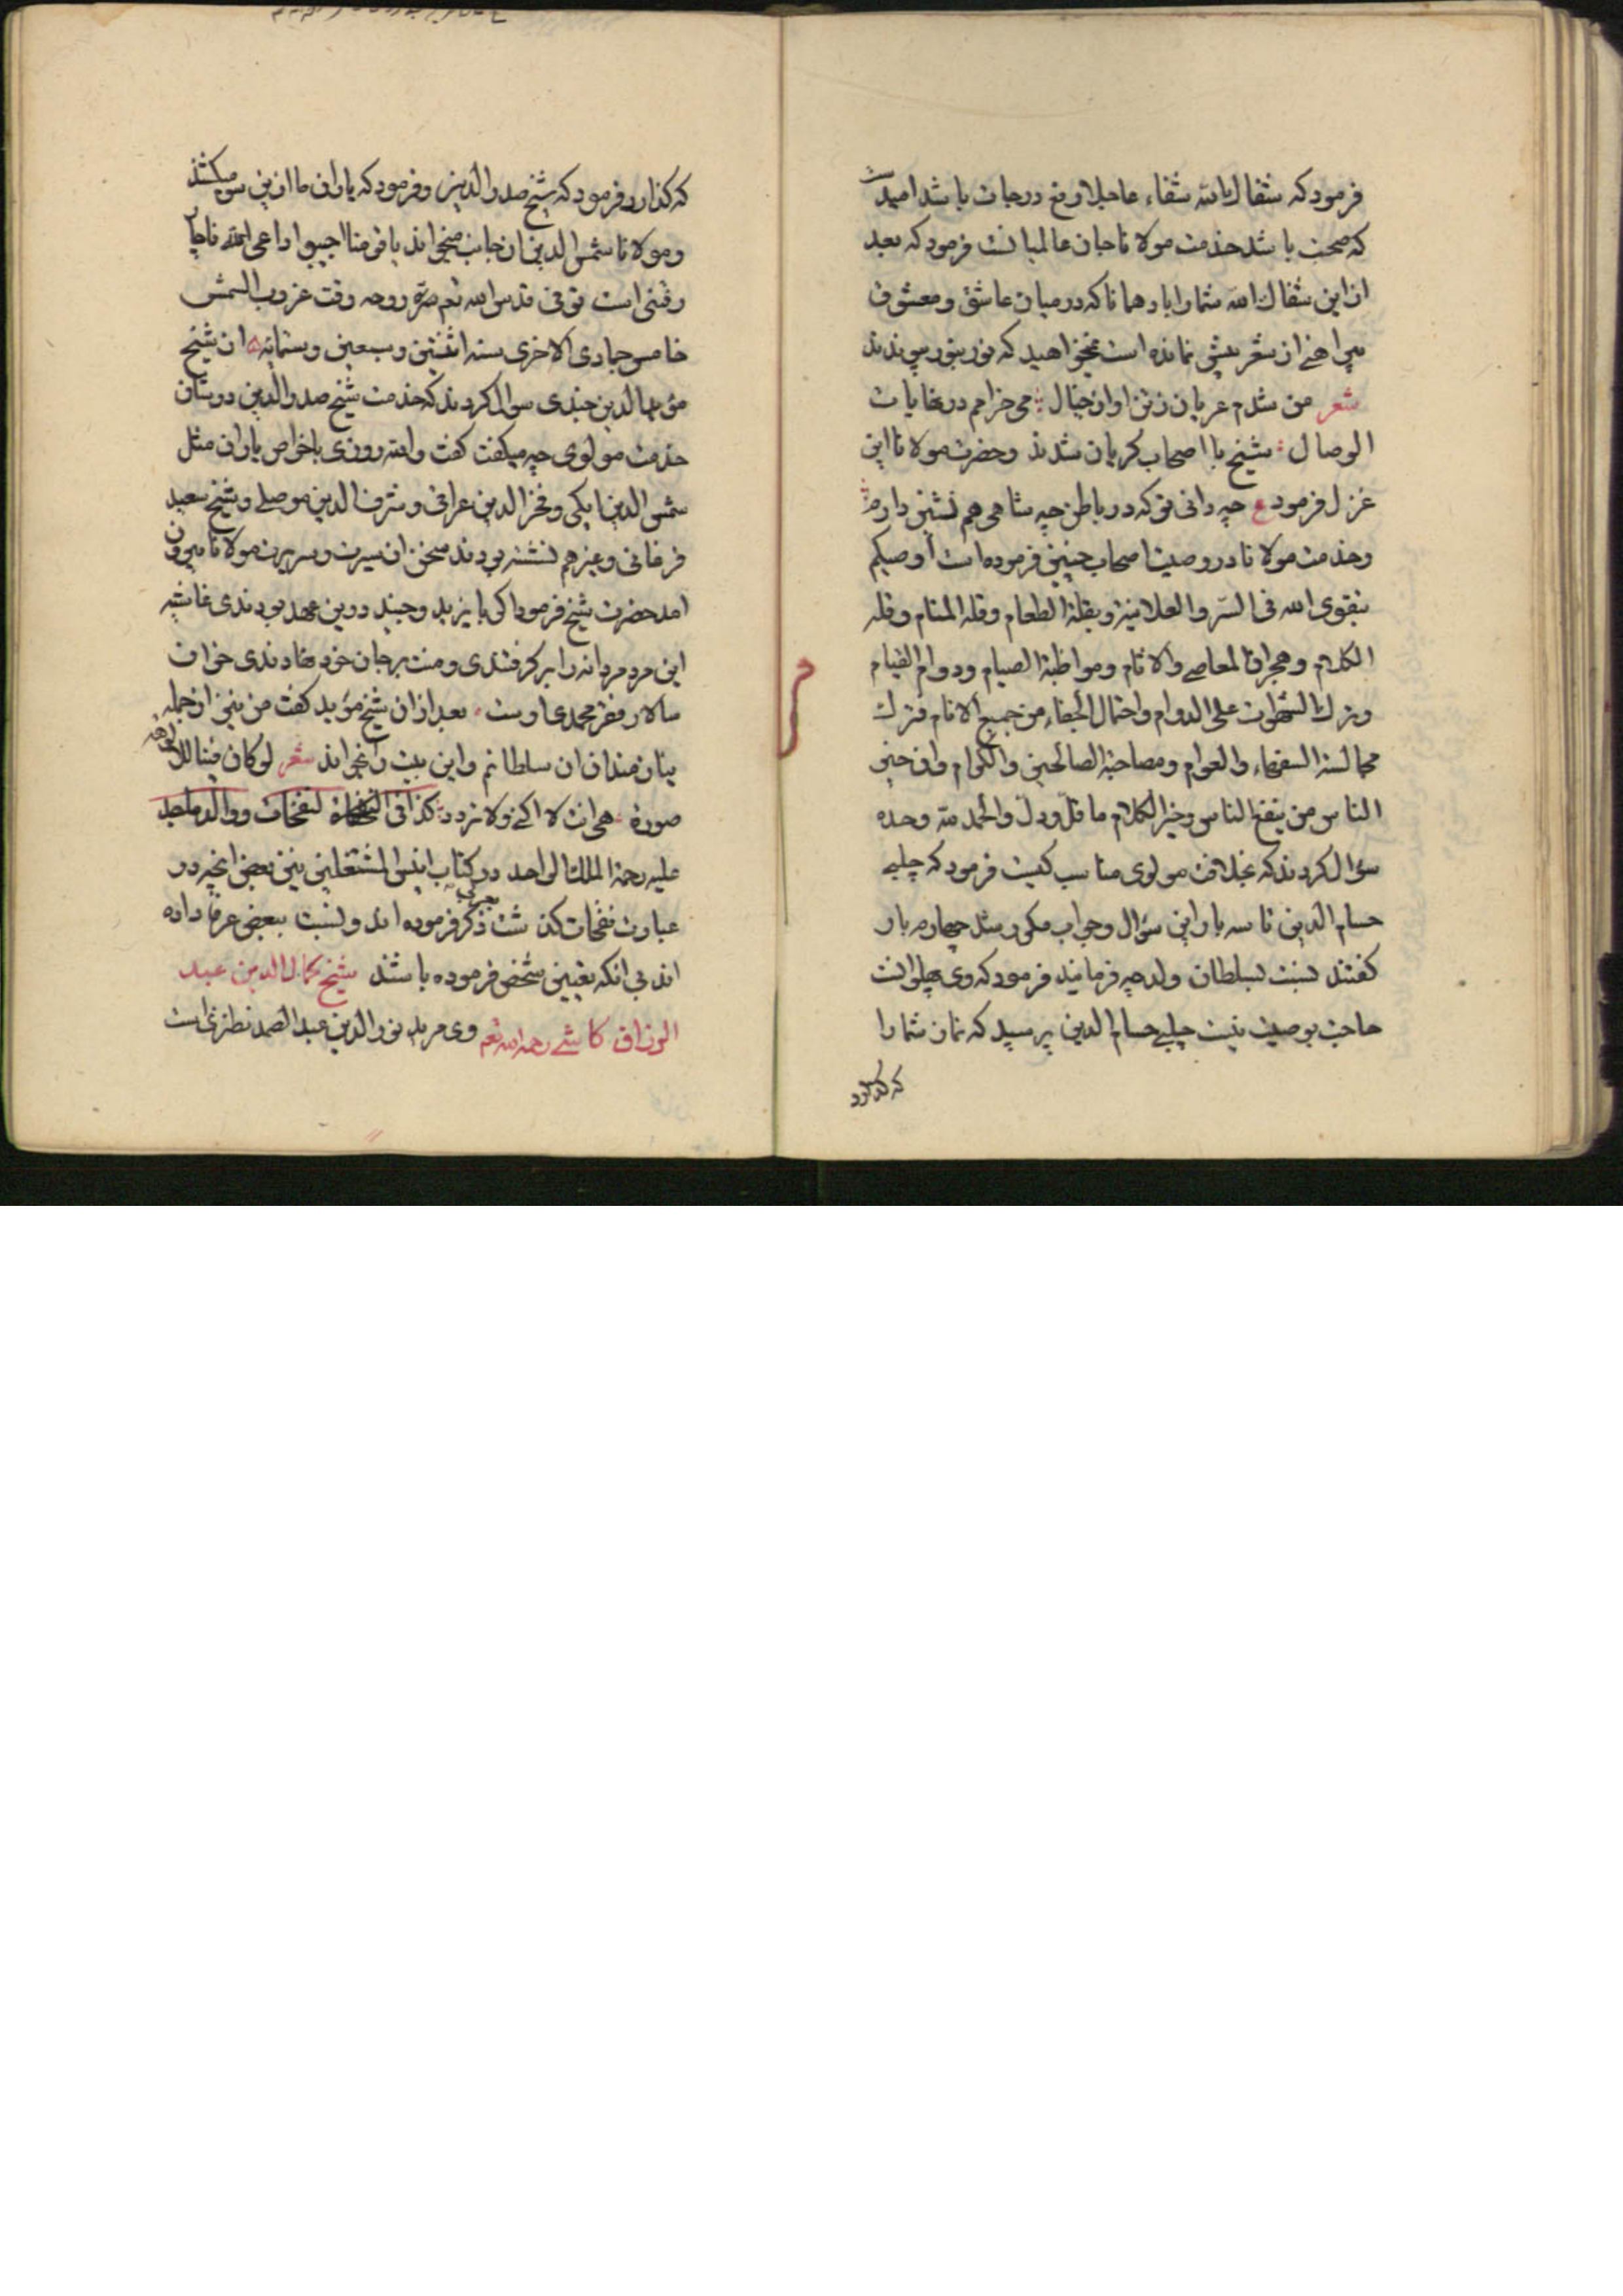 فرمود که شفاك الله شفاء عاجلا رفع درجات باشد امید
که صحت باشد خدمت مولانا جان عالمیانست فرمود که بعد
ازین شفاك الله شما را باد همانا که در میان عاشق و معشوق
پیراهنی از شعر بیش نمانده است نمیخواهید که نور بنور پیوندد
شعر من شدم عریان ز تن او از خیال می خرامم در نهایات
الوصال شیخ با اصحاب گریان شدند و حضرت مولانا این
غزل فرمود ع چه دانی تو که در باطن چه شاهی هم نشین دارم
و خدمت مولانا در وصیت اصحاب چنین فرموده است أوصیکم
بتقوی الله فی السّر والعلانیة وبقلة الطعام وقلة المنام وقلة
الکلام وهجران المعاصی والاثام ومواظبة الصیام ودوام القیام
وترك الشهوات علی الدوام واحتمال الجفاء من جمیع الانام وترك
مجالسة السفهاء والعوام ومصاحبة الصالحین والکرام وان خیر
الناس من ینفع الناس وخیر الکلام ما قلّ ودلّ والحمد لله وحده
سؤال کردند که بخلافت مولوی مناسب کیست فرمود که چلبی
حسام الدین تا سه بار این سؤال و جواب مکرر شد چهارم بار
گفتند نسبت بسلطان ولد چه فرمایند فرمود که وی پهلوانست
حاجت بوصیت نیست چلبی حسام الدین پرسید که نماز شما را
که گذارد
که گذارد فرمود که شیخ صدر الدین و فرمود که یاران ما ازین سو میکشند
و مولانا شمس الدین ان جانب میخواند یا قومنا اجیبوا داعی الله ناچار
رفتنی است توفی قدس الله تعم سرّه روحه وقت غروب الشمس
خامس جمادی الاخری سنه اثنتین وسبعین وستمائه از شیخ
مؤید الدین جندی سوال کردند که خدمت شیخ صدر الدین در شان
خدمت مولوی چه میگفت گفت والله روزی با خواص یاران مثل
شمس الدین ایکی و فخر الدین عراقی و شرف الدین موصلی و شیخ سعید
فرغانی و غیرهم نشسته بودند سخن از سیرت و سریرت مولانا بیرون
امد حضرت شیخ فرمود اگر بایزید و جنید درین عهد بودندی غاشیه
این مرد مردانه را برگرفتندی و منت بر جان خود نهادندی خوان
سالار فقر محمدی اوست بعد ازان شیخ مؤید گفت من نیز از جمله
نیازمندان ان سلطانم و این بیت را بخواند شعر لو کان فینا للالوهة
صورة هی انت لا اکنی ولا اتردد کذا فی النفحات و والد ماجد
علیه رحمة الملك الواحد در کتاب انیس المشتغلین نیز بعضی انچه در
عبارت نفحات گذشت ذکر فرموده اند و نسبت ببعضی عرفا داده
اند بی انکه تعیین شخص فرموده باشند شیخ کمال الدین عبد
الرزاق کاشی رحمه الله تعم وی مرید نور الدین عبد الصمد نطنزی است